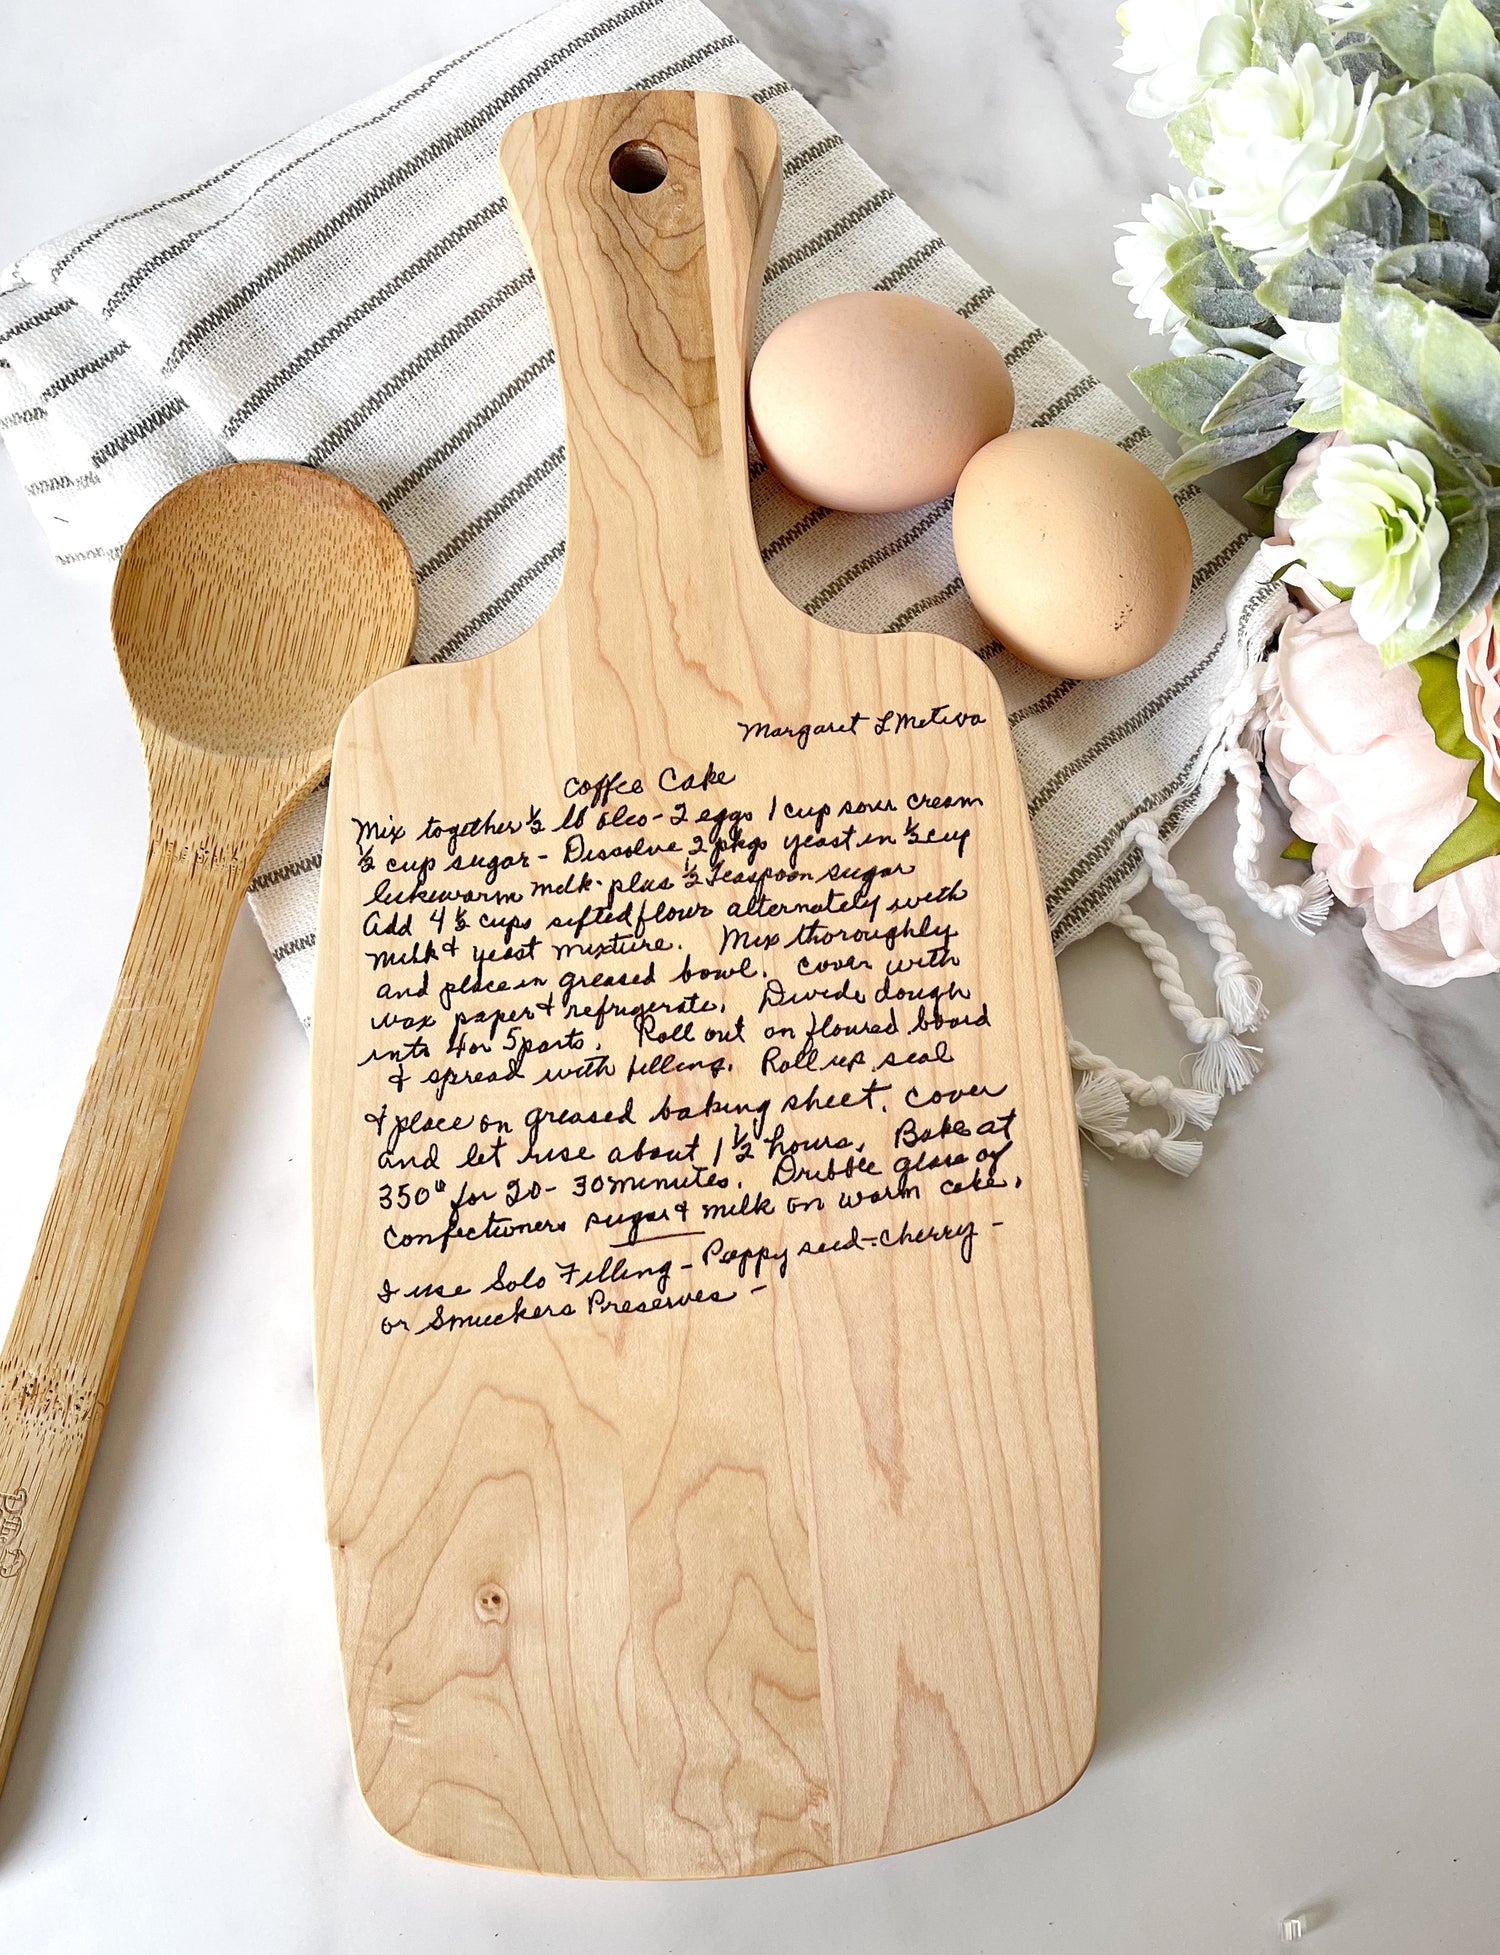 Margaret L Metiva
Coffee Cake
Mix together ½ lb oleo - 2 eggs 1 cup sour cream
½ cup sugar - Dissolve 2 pkgs yeast in ½ cup
lukewarm milk - plus ½ teaspoon sugar
Add 4 ½ cups sifted flour alternately with
milk & yeast mixture. Mix thoroughly
and place in greased bowl. Cover with
wax paper & refrigerate. Divide dough
into 4 or 5 parts. Roll out on floured board
& spread with filling. Roll up, seal
& place on greased baking sheet. Cover
and let rise about 1 ½ hours. Bake at
350° for 20 - 30 minutes. Dribble glase of
Confectioners sugar & milk on warm cake.
I use Solo Filling - Poppy seed - cherry -
or Smuckers Preserves -